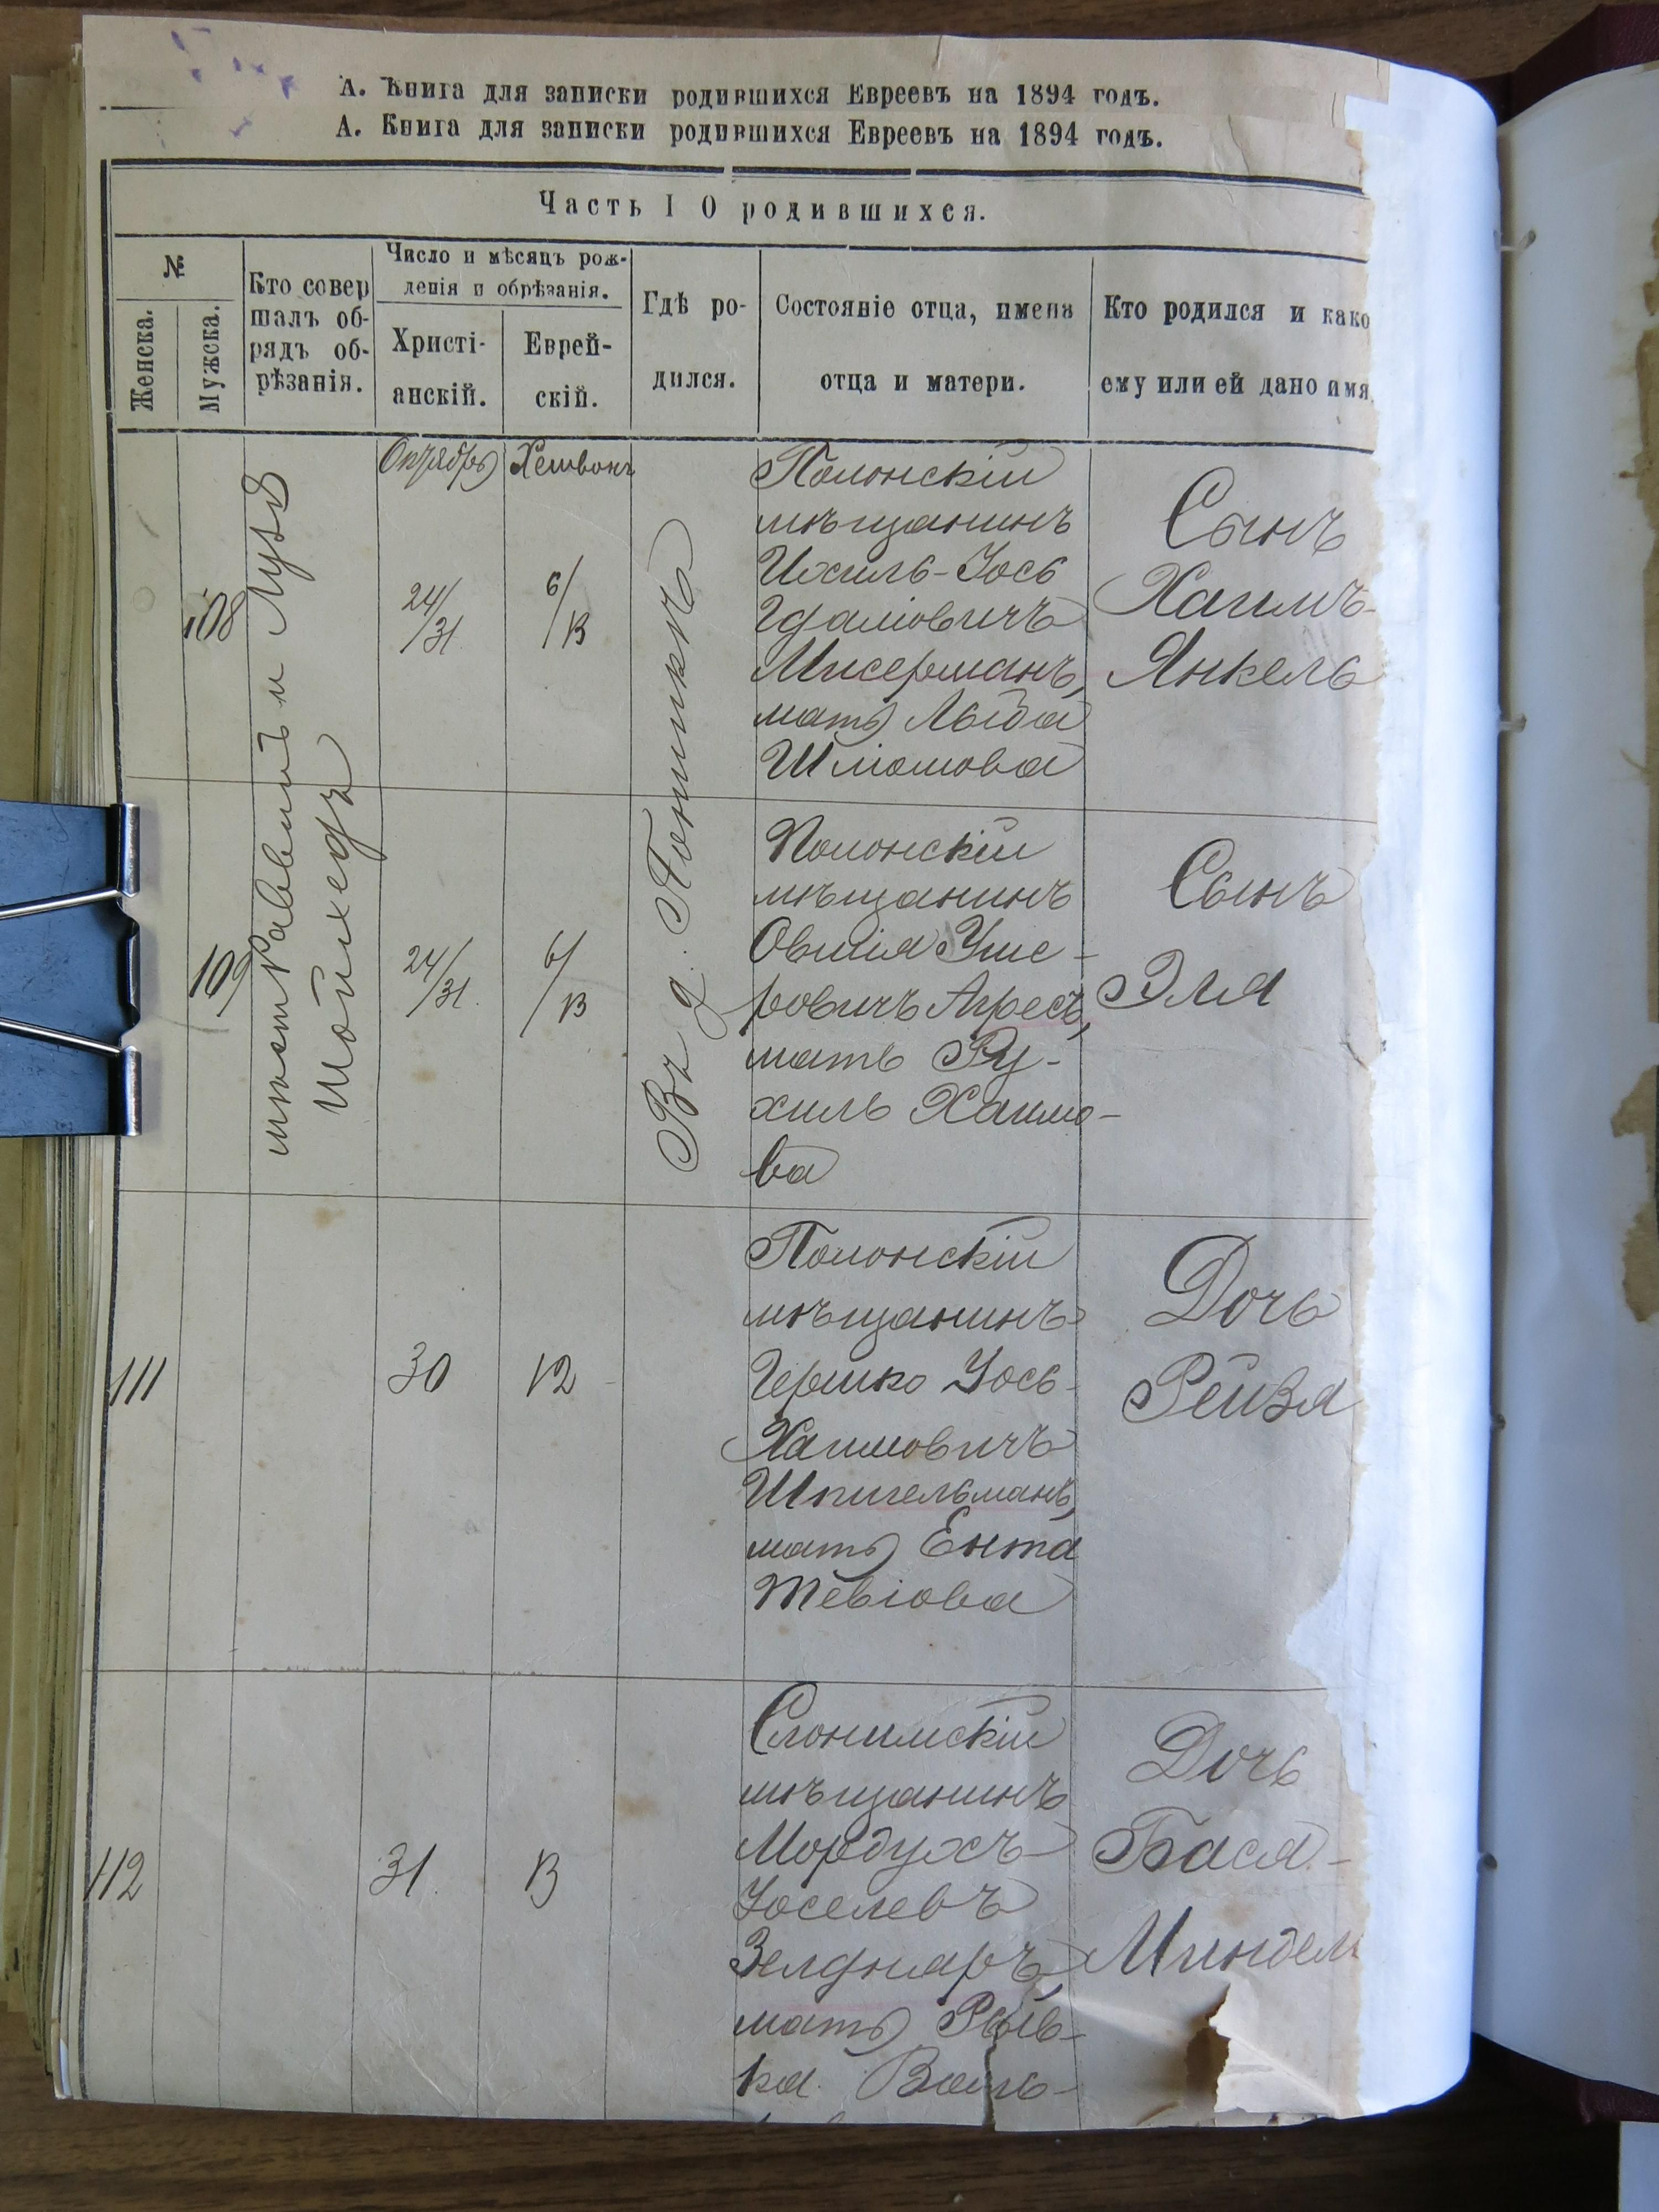 А. Книга для записки родившихся Евреевъ на 1894 годъ.
А. Книга для записки родившихся Евреевъ на 1894 годъ.
Часть I О родившихся.
№
Женска.
Мужска.
Кто совер
шалъ об-
рядъ об-
рѣзанія.
Число и мѣсяцъ рож-
денія и обрѣзанія.
Христі-
анскій.
Еврей-
скій.
Гдѣ ро-
дился.
Состояніе отца, имена
отца и матери.
Кто родился и како
ему или ей дано имя
Октябрь
Хешвонъ
Раввинъ и
Въ д.
108
24/31
6/13
Полонскій
мѣщанинъ
Ихиль-Іось
Гдаліовичъ
Мисерманъ,
мать Лыба
Шліомова
Сынъ
Хаимъ-
Янкель
109
24/31.
6/13
Полонскій
мѣщанинъ
Овшія Уше-
ровичъ Агресъ,
мать Ру-
хиль Хаимо-
ва
Сынъ
Эля
111
30
12
Полонскій
мѣщанинъ
Гершко Іось-
Хаимовичъ
Шпигельманъ,
мать Ента
Тевіова
Дочь
Рейзя
112
31.
13
Слонимскій
мѣщанинъ
Мордухъ
Іоселевъ
Зелднаръ,
мать Рыв-
ка Воль-
Дочь
Бася-
Миндель